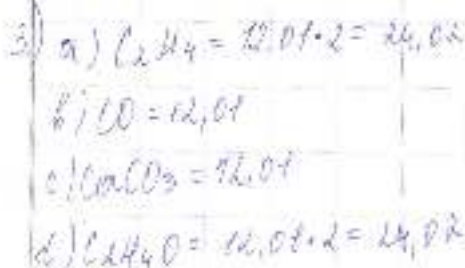 3) a) C2H4 = 12,01·2 = 24,02
b) CO = 12,01
c) CaCO3 = 12,01
d) C2H4O = 12,01·2 = 24,02